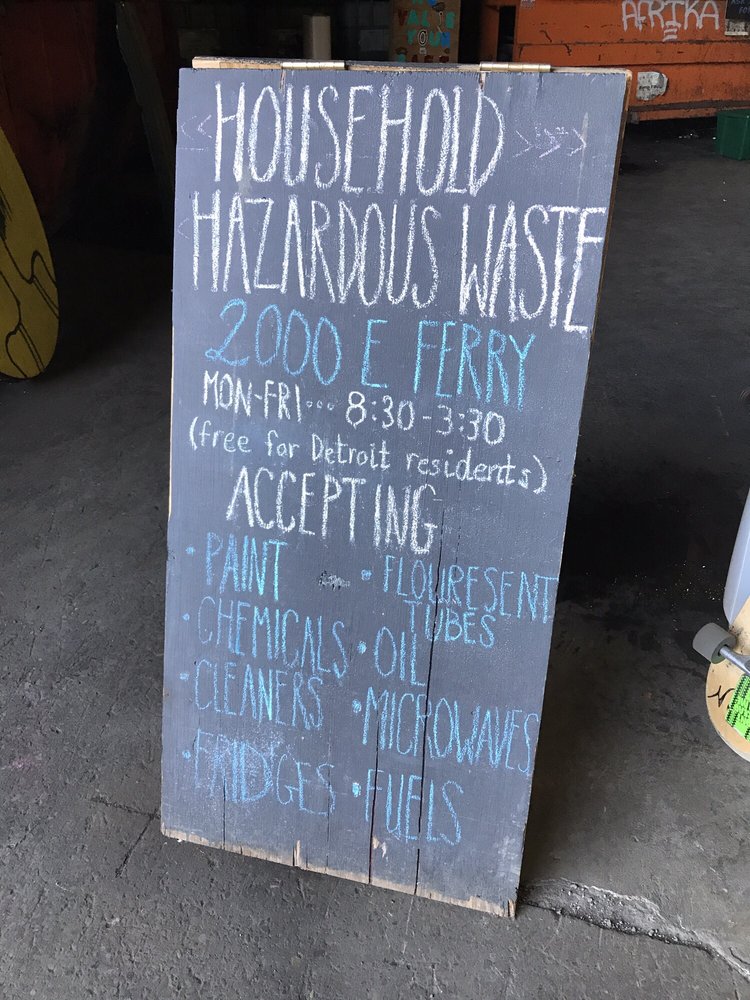 AFRIKA
<<HOUSEHOLD>>>
HAZARDOUS WASTE
2000 E FERRY
MON-FRI... 8:30-3:30
(free for Detroit residents)
ACCEPTING
• PAINT
• CHEMICALS
• CLEANERS
• FRIDGES
• FLOURESENT
TUBES
• OIL
• MICROWAVES
• FUELS